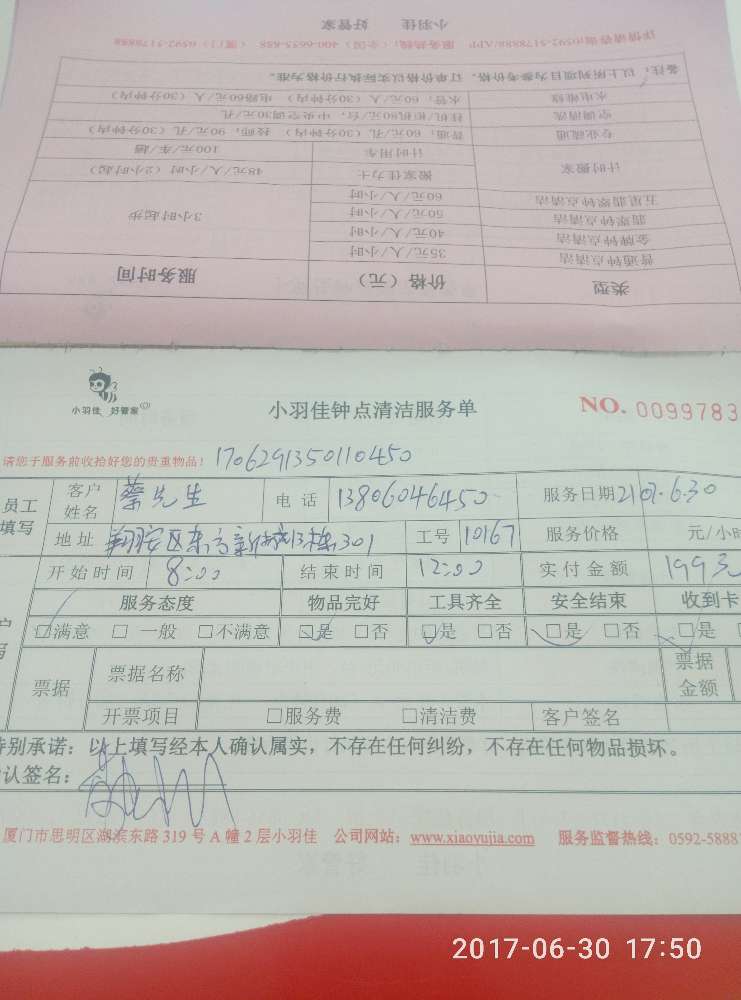 小羽佳 好管家
详情请咨询0592-5178888/APP 服务热线:(全国)400-6655-888 (厦门)0592-5178888
备注:以上所列项目为参考价格,订单价格以实际执行价格为准。
水电维修 水管:60元/人(30分钟内) 电路60元/人(30分钟内)
空调清洗 挂机/柜机80元/台,中央空调30元/孔
专业疏通 普通:60元/孔(30分钟) 技师:90元/孔(30分钟内)
计时搬家 计时用车 100元/车/趟
搬家佳力卡 48元/人/小时(2小时起)
五星翡翠钟点清洁 60元/人/小时
翡翠钟点清洁 50元/人/小时 3小时起步
金牌钟点清洁 40元/人/小时
普通钟点清洁 35元/人/小时
类型 价格(元) 服务时间
小羽佳 好管家
小羽佳钟点清洁服务单 NO. 0099783
请您于服务前收拾好您的贵重物品! 1706291350110450
员工填写 客户姓名 蔡先生 电话 13806046450 服务日期 2107.6.30
地址 翔安区东方新城13栋301 工号 10167 服务价格 元/小
开始时间 8:00 结束时间 12:00 实付金额 199元
服务态度 物品完好 工具齐全 安全结束 收到卡
☑满意 □一般 □不满意 ☑是 □否 ☑是 □否 ☑是 □否 ☑是
票据 票据名称 票据金额
开票项目 □服务费 □清洁费 客户签名
特别承诺:以上填写经本人确认属实,不存在任何纠纷,不存在任何物品损坏。
认签名:
厦门市思明区湖滨东路 319 号 A 幢 2 层小羽佳 公司网站:www.xiaoyujia.com 服务监督热线:0592-5888
2017-06-30 17:50